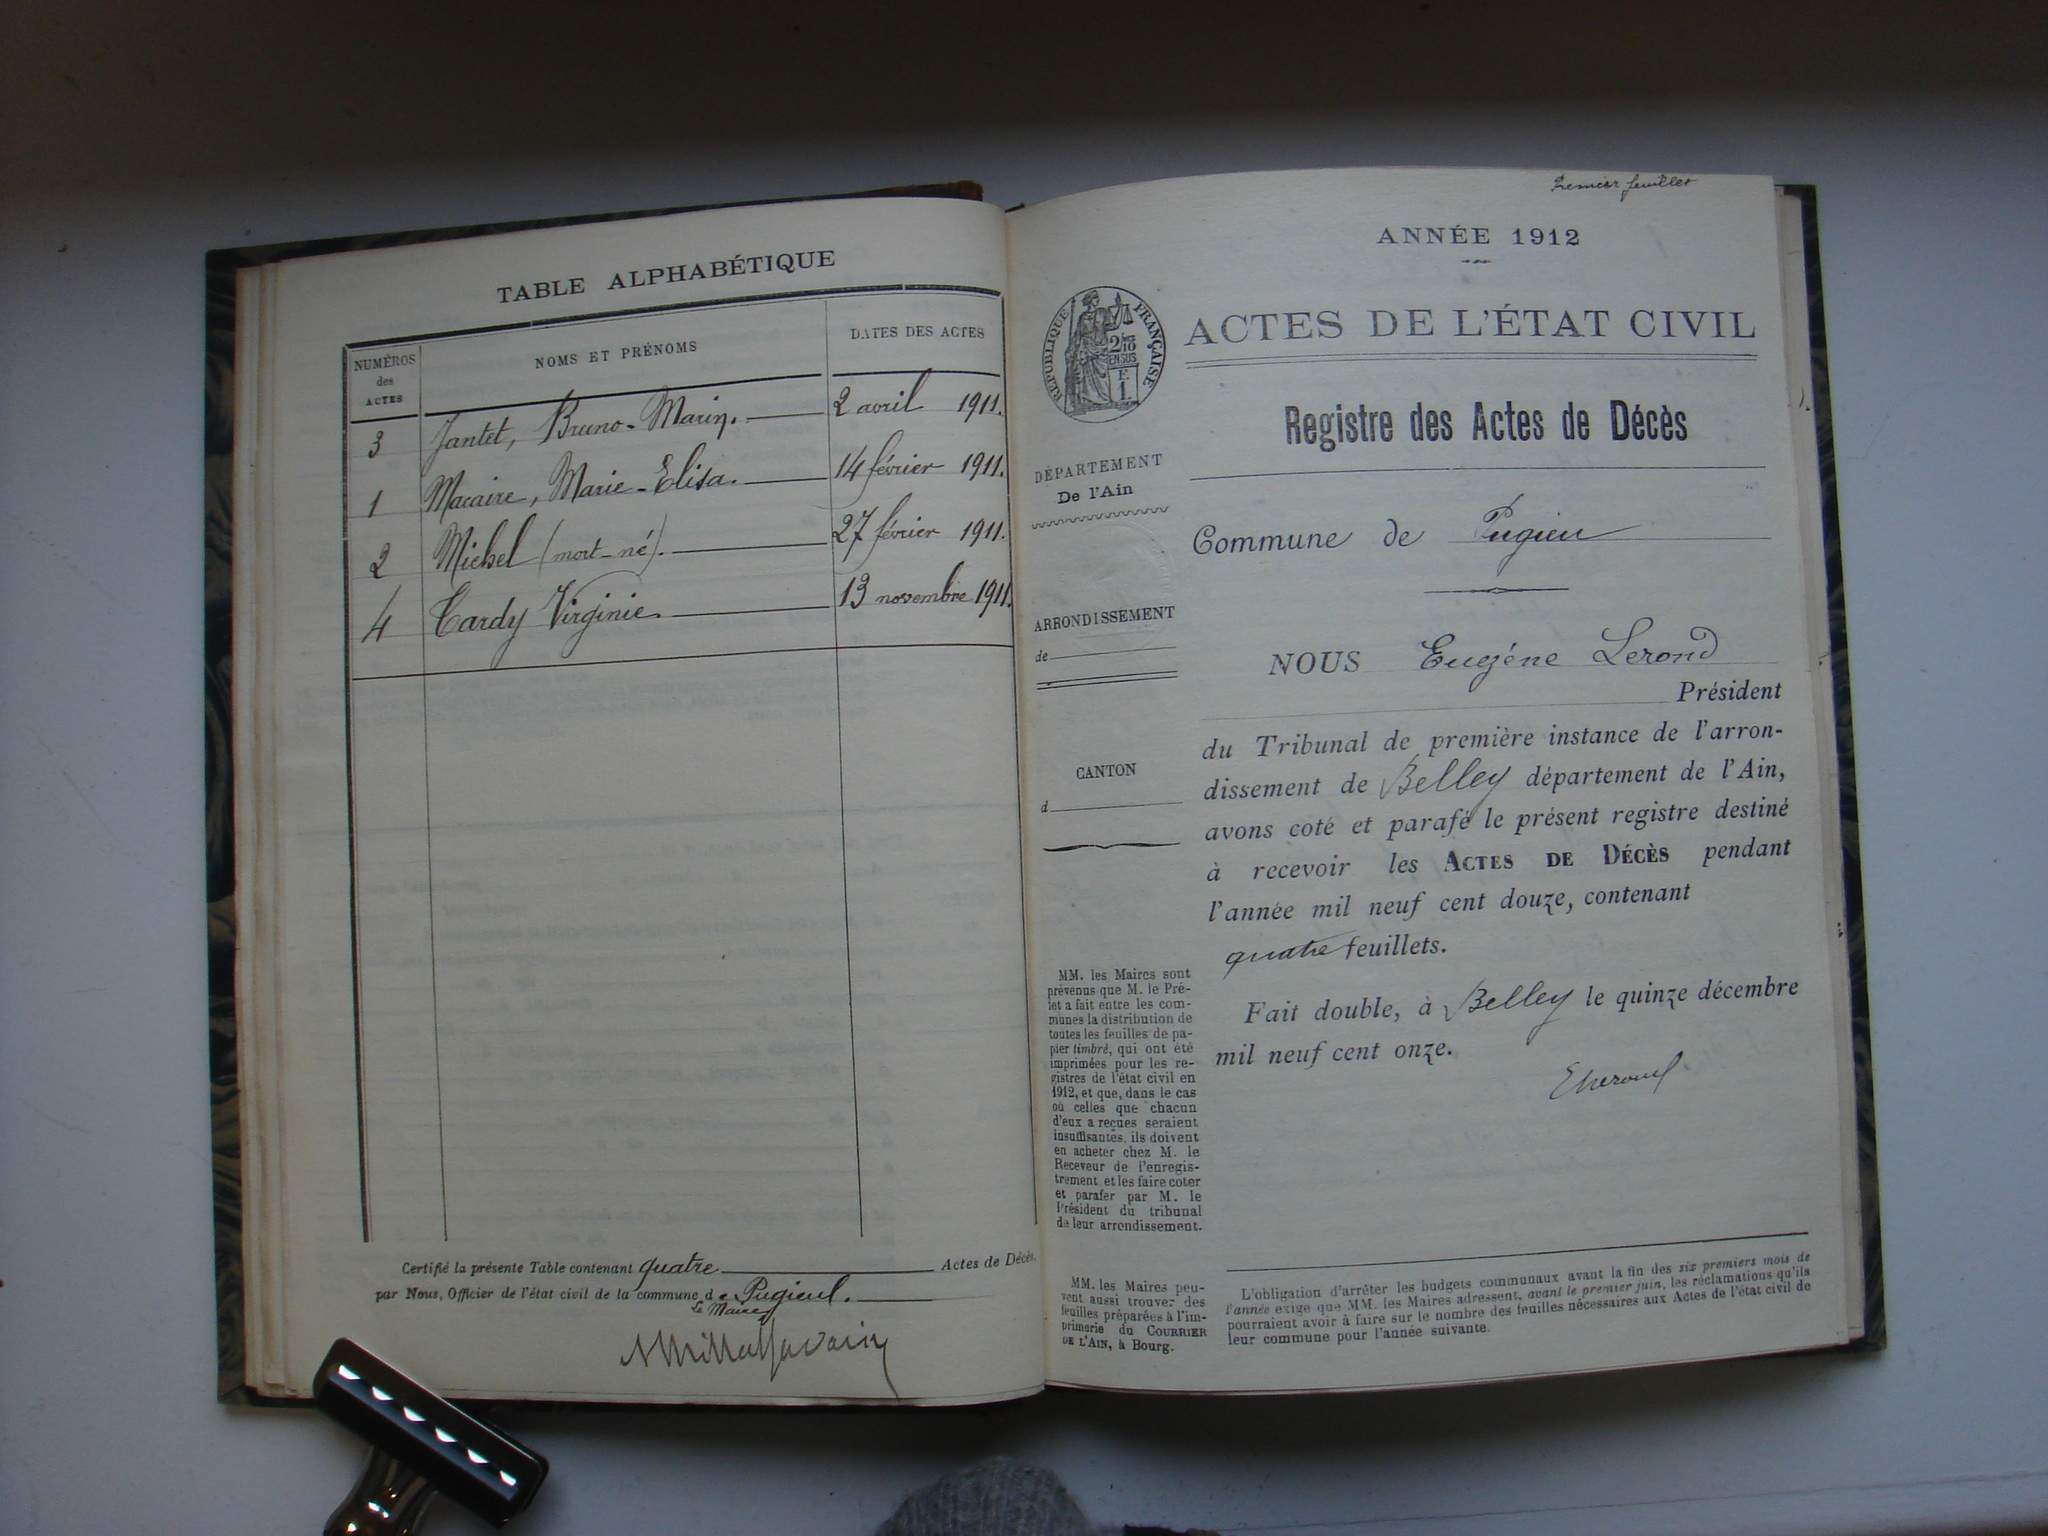 TABLE ALPHABÉTIQUE
NUMÉROS
des
ACTES
NOMS ET PRÉNOMS
DATES DES ACTES
3 Jantet, Bruno-Marin. 2 avril 1911.
1 Macaire, Marie-Elisa. 14 février 1911.
2 Michel (mort-né). 27 février 1911.
4 Tardy Virginie. 13 novembre 1911.
Certifié la présente Table contenant quatre Actes de Décès.
par Nous, Officier de l'état civil de la commune de Pugieu.
Le Maire,
Premier feuillet
ANNÉE 1912
RÉPUBLIQUE FRANÇAISE
ACTES DE L'ÉTAT CIVIL
Registre des Actes de Décès
DÉPARTEMENT
De l'Ain
Commune de Pugieu
ARRONDISSEMENT
de
NOUS Eugène Lerond
Président
du Tribunal de première instance de l'arron-
dissement de Belley département de l'Ain,
avons coté et parafé le présent registre destiné
à recevoir les ACTES DE DÉCÈS pendant
l'année mil neuf cent douze, contenant
quatre feuillets.
Fait double, à Belley le quinze décembre
mil neuf cent onze.
CANTON
d
MM. les Maires sont
prévenus que M. le Pré-
fet a fait entre les com-
munes la distribution de
toutes les feuilles de pa-
pier timbré, qui ont été
imprimées pour les re-
gistres de l'état civil en
1912, et que, dans le cas
où celles que chacun
d'eux a reçues seraient
insuffisantes, ils doivent
en acheter chez M. le
Receveur de l'enregis-
trement et les faire coter
et parafer par M. le
Président du tribunal
de leur arrondissement.
MM. les Maires peu-
vent aussi trouver des
feuilles préparées à l'im-
primerie du COURRIER
DE L'AIN, à Bourg.
L'obligation d'arrêter les budgets communaux avant la fin des six premiers mois de
l'année exige que MM. les Maires adressent, avant le premier juin, les réclamations qu'ils
pourraient avoir à faire sur le nombre des feuilles nécessaires aux Actes de l'état civil de
leur commune pour l'année suivante.